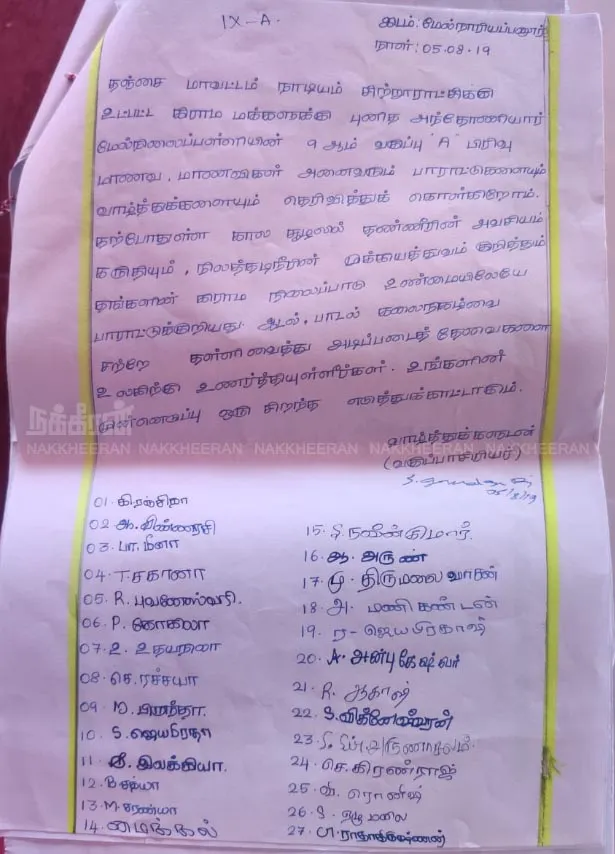 IX-A.
இடம்: மேல்நாரியப்பனூர்
நாள்: 05.08.19
தஞ்சை மாவட்டம் நாடியம் சிற்றாராட்சிக்கு
உட்பட்ட கிராம மக்களுக்கு புனித அந்தோணியார்
மேல்நிலைப்பள்ளியின் 9 ஆம் வகுப்பு "A" பிரிவு
மாணவ, மாணவிகள் அனைவரும் பாராட்டுகளையும்
வாழ்த்துக்களையும் தெரிவித்துக் கொள்கிறோம்.
தற்போதுள்ள கால சூழலில் தண்ணீரின் அவசியம்
கருதியும், நிலத்தடிநீரின் முக்கியத்துவம் குறித்தும்
தங்களின் கிராம நிலைப்பாடு உண்மையிலேயே
பாராட்டுக்குரியது. ஆடல், பாடல் கலைநிகழ்வை
சற்றே தள்ளிவைத்து அடிப்படைத் தேவைகளை
உலகிற்கு உணர்த்தியுள்ளீர்கள். உங்களின்
முன்னெடுப்பு ஒரு சிறந்த எடுத்துக்காட்டாகும்.
வாழ்த்துக்களுடன்
(வகுப்பாசிரியர்)
நக்கீரன்
NAKKHEERAN NAKKHEERAN NAKKHEERAN NAKKHEERAN NAKKHEERAN NAKKHEERAN
01. கிரஞ்சிகா
02. ஆ. விண்ணரசி
03. பா. மீனா
04. T. சகானா
05. R. புவனேஸ்வரி.
06. P. கோகிலா
07. உ. உதயநிலா
08. செ. ரச்சயா
09. M.
10. S. ஜெயபிரதா
11. ஸ்ரீ. இலக்கியா.
12. B. சுஷ்யா
13. M. சரண்யா
14. மைக்கல்
15. S. நவீன்குமார்.
16. ஆ. அருண்
17. மு. திருமலை வாசன்
18. அ. மணிகண்டன்
19. ர- ஜெயபிரகாஷ்
20. A. அன்பு கேஷ்வர்
21. R. ஆகாஷ்
22. S. விக்னேஷ்வரன்
23. S. அருணாசலம்.
24. செ. கிரண்ராஜ்
25. ரொனிஷ்
26. S. ஏழுமலை
27. ராதாகிருஷ்ணன்